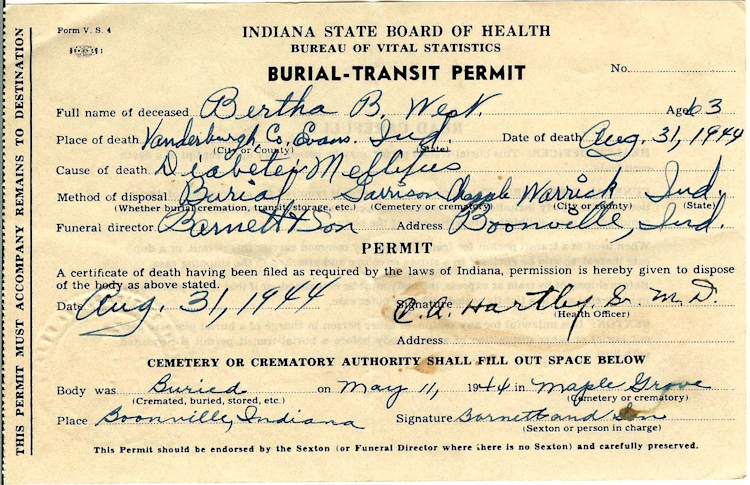 Form V. S. 4
INDIANA STATE BOARD OF HEALTH
BUREAU OF VITAL STATISTICS
BURIAL-TRANSIT PERMIT
No.
Full name of deceased Bertha B. West. Age 63
Place of death Vanderburgh, Co, Evans. Ind. Date of death Aug. 31, 1944
(City or County) (State)
Cause of death Diabetes Mellitus
Method of disposal Burial Garrison Chapple Warrick Ind.
(Whether burial, cremation, transit, storage, etc.) (Cemetery or crematory) (City or county) (State)
Funeral director Barnett & Son Address Boonville, Ind.
PERMIT
A certificate of death having been filed as required by the laws of Indiana, permission is hereby given to dispose
of the body as above stated.
Date Aug. 31, 1944 Signature Hartley, Sr. M. D.
(Health Officer)
Address
CEMETERY OR CREMATORY AUTHORITY SHALL FILL OUT SPACE BELOW
Body was Buried on May 11, 1944 in Maple Grove
(Cremated, buried, stored, etc.) (Cemetery or crematory)
Place Boonville, Indiana Signature Barnett and Son
(Sexton or person in charge)
This Permit should be endorsed by the Sexton (or Funeral Director where there is no Sexton) and carefully preserved.
THIS PERMIT MUST ACCOMPANY REMAINS TO DESTINATION